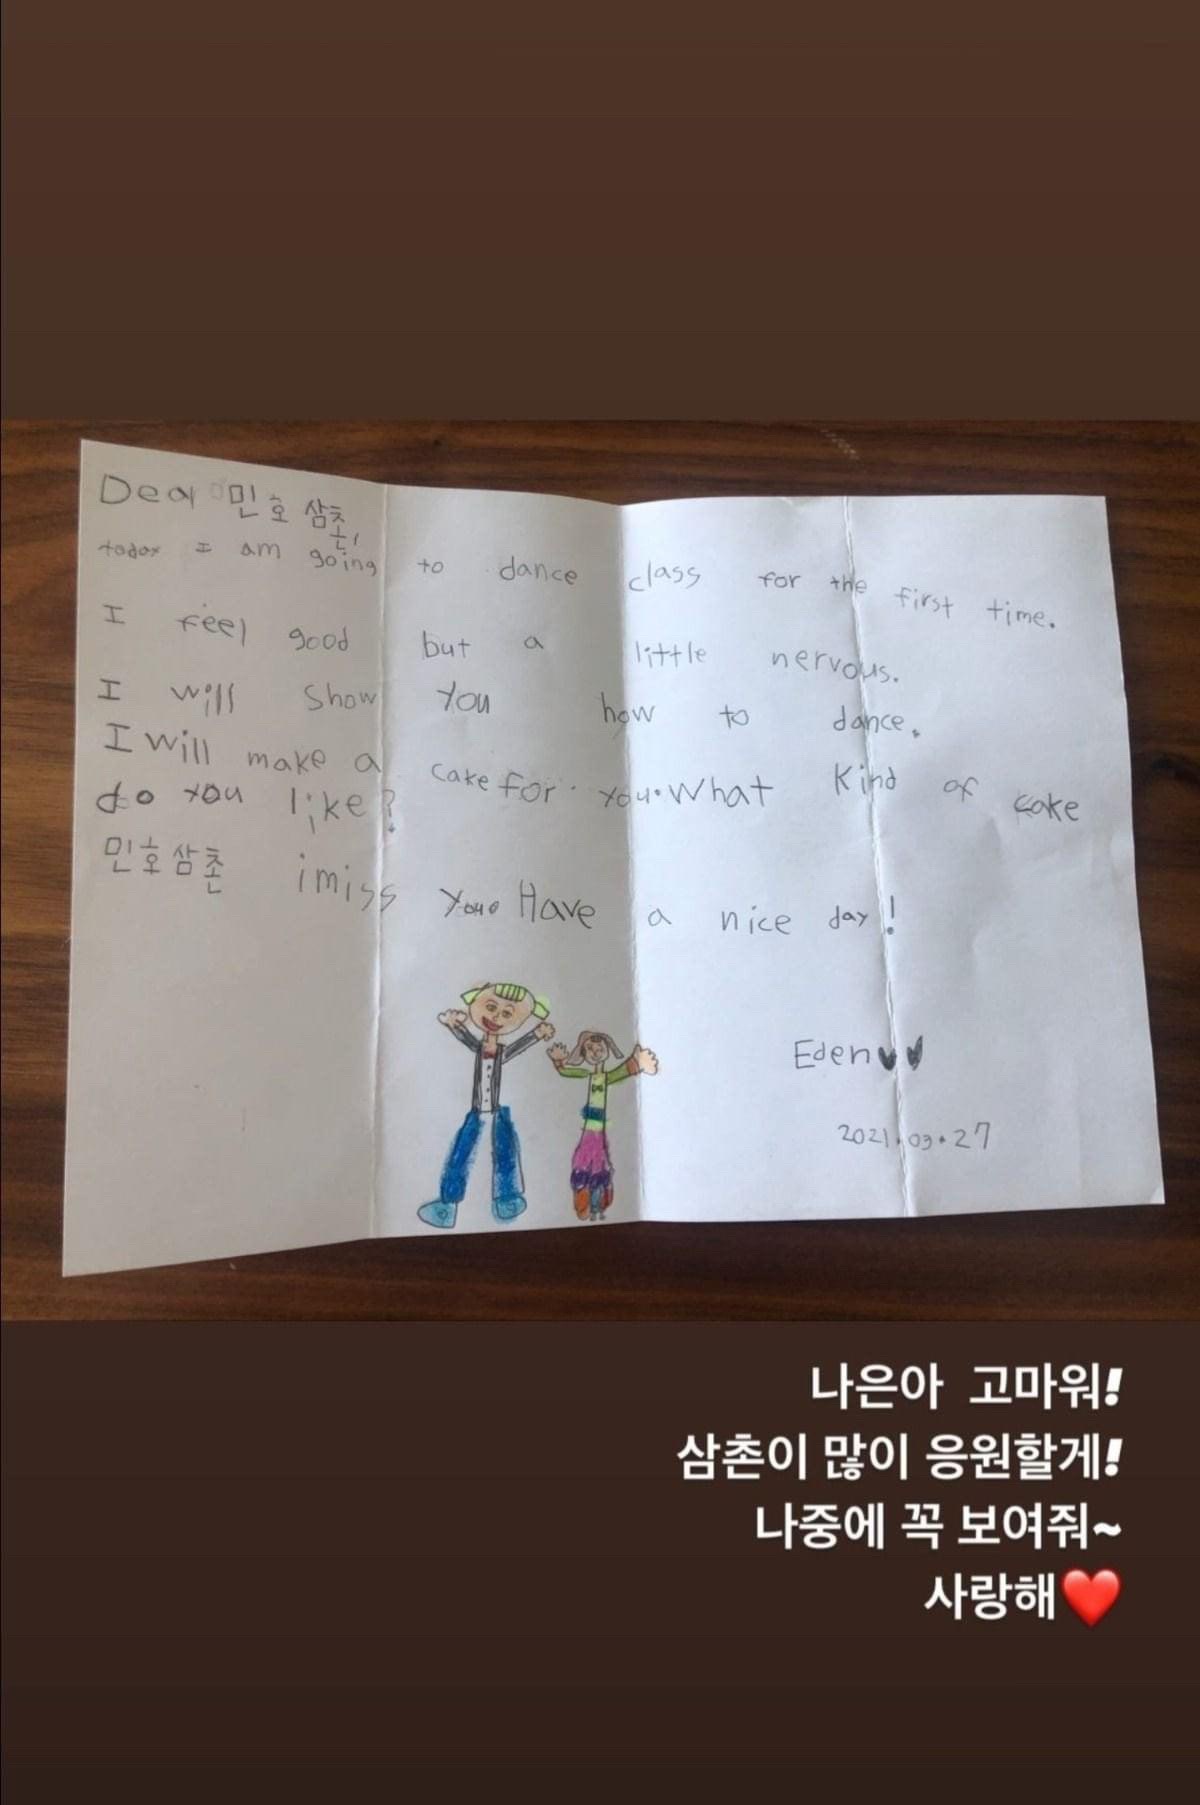 Dear 민호 삼촌,
today I am going to dance class for the first time.
I feel good but a little nervous.
I will show you how to dance.
I will make a cake for you. What kind of cake
do you like?
민호삼촌 i miss you. Have a nice day!
Eden
2021.03.27
나은아 고마워!
삼촌이 많이 응원할게!
나중에 꼭 보여줘~
사랑해❤️